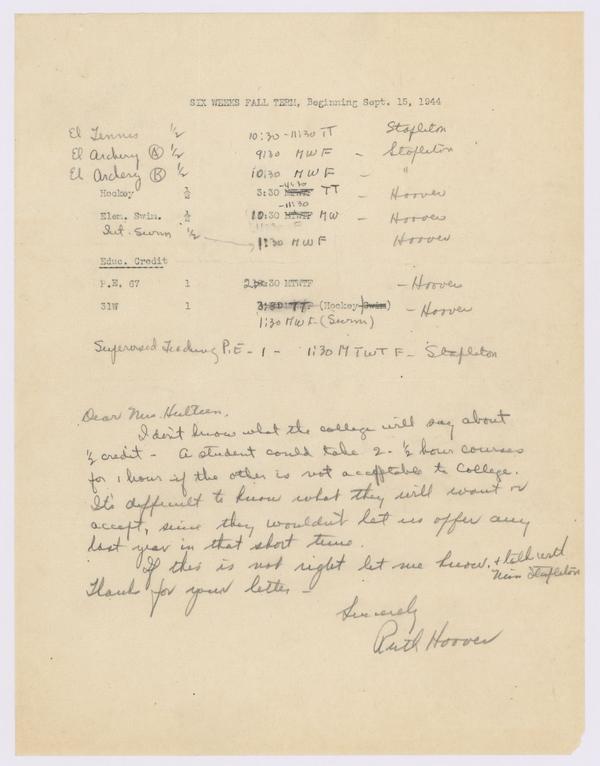 SIX WEEKS FALL TERM, Beginning Sept. 15, 1944
El Tennis 1/2 10:30 - 11:30 TT Stapleton
El Archery (A) 1/2 9:30 MWF - Stapleton
El Archery (B) 1/2 10:30 MWF - "
Hockey 1/2 3:30 -4:30 TT - Hoover
Elem. Swim. 1/2 10:30 -11:30 MW - Hoover
Int. Swim 1/2 1:30 MWF Hoover
Educ. Credit
P.E. 67 1 :30 MTWTF - Hoover
31W 1 3:30 TT (Hockey Swim) - Hoover
1:30 MWF (Swim)
Supervised Teaching P.E - 1 - 1:30 MTWTF - Stapleton
Dear Mrs. Hulteen,
I don't know what the college will say about
1/2 credit - A student could take 2 - 1/2 hour courses
for 1 hour if the other is not acceptable to College.
It's difficult to know what they will want or
accept, since they wouldn't let us offer any
last year in that short time.
If this is not right let me know. + talk with
Miss Stapleton
Thanks for your letter -
Sincerely
Ruth Hoover